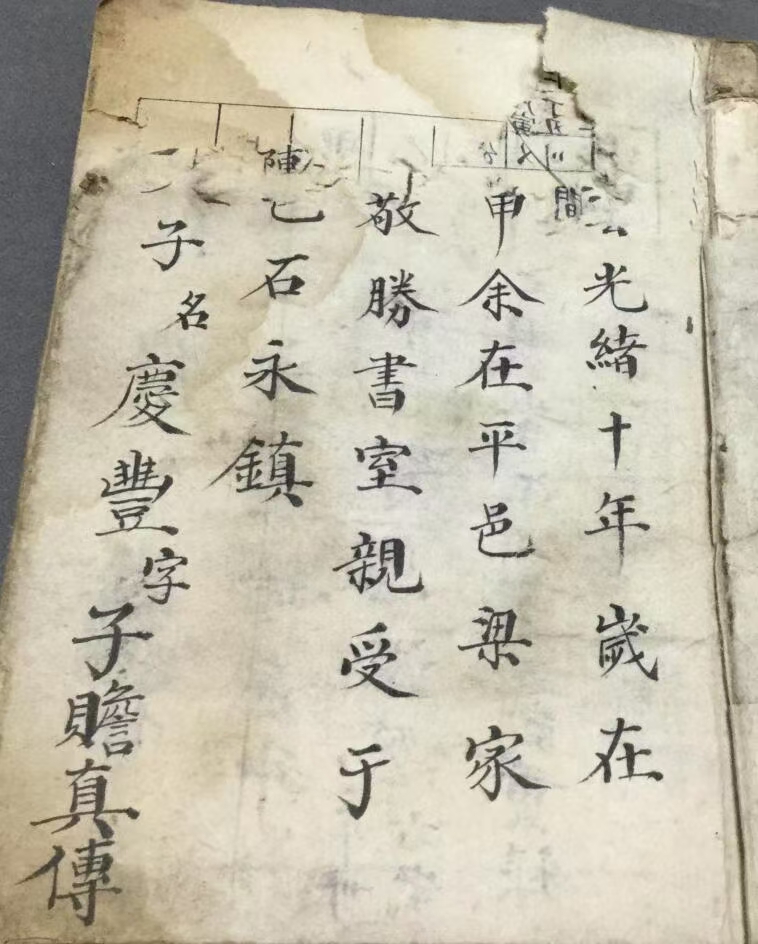 光緒十年歲在
甲余在平邑梁家
敬勝書室親受于
石永鎮
子名慶豐字子贍真傳